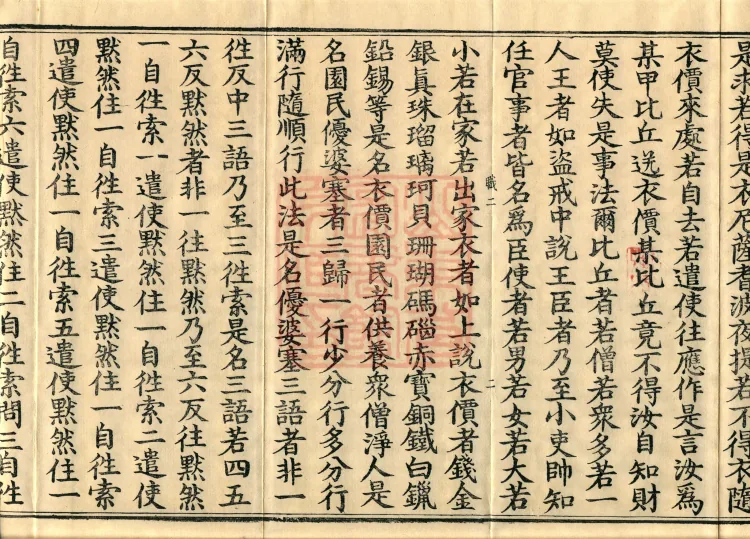 是求若得是衣尼薩耆波夜提若不得衣隨
衣價來處若自去若遣使往應作是言汝爲
某甲比丘送衣價某比丘竟不得汝自知財
莫使失是事法爾比丘者若僧若衆多若一
人王者如盜戒中說王臣者乃至小吏帥知
任官事者皆名爲臣使者若男若女若大若
小若在家若出家衣者如上說衣價者錢金
銀眞珠瑠璃珂貝珊瑚碼碯赤寶銅鐵白鑞
鉛錫等是名衣價園民者供養衆僧淨人是
職二 二
名園民優婆塞者三歸一行少分行多分行
滿行隨順行此法是名優婆塞三語者非一
徃反中三語乃至三徃索是名三語若四五
六反默然者非一徃默然乃至六反往默然
一自徃索一遣使默然住一自徃索二遣使
默然住一自徃索三遣使默然住一自徃索
四遣使默然住一自徃索五遣使默然住一
自徃索六遣使默然住二自徃索問三自徃